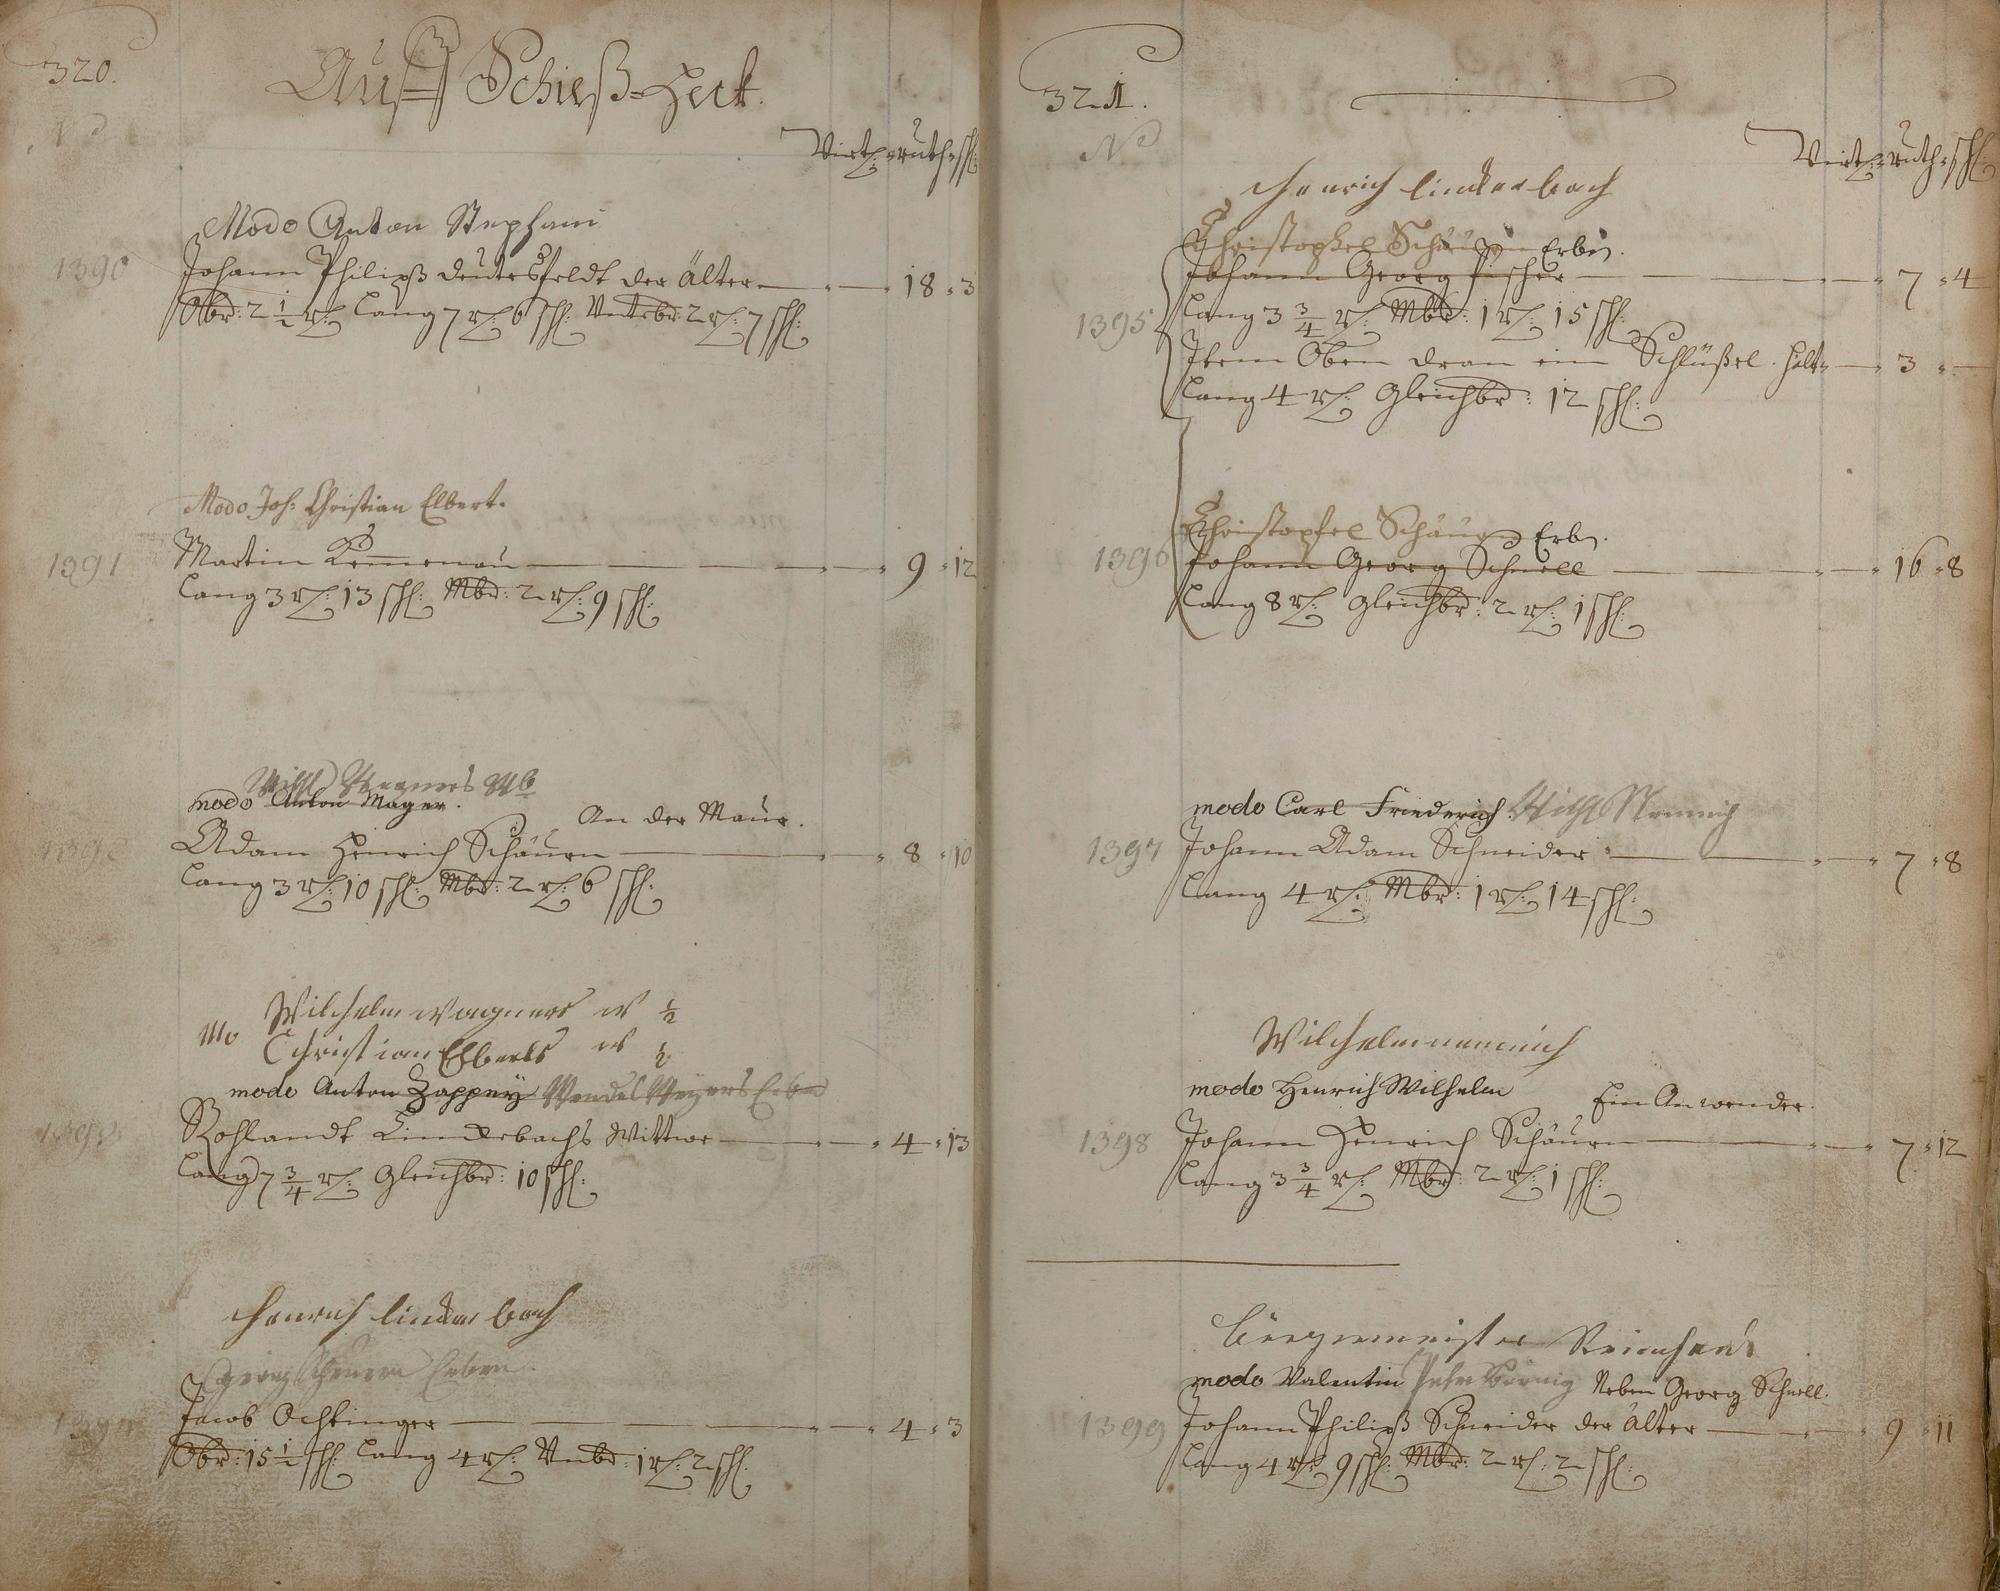 320.
Auff Schieß-Heck.
No
Virtl: ruth: schl:
Modo Anton Stephani
1390 Johann Philipß Deutesfeldt der Älter 18 = 3
Obrd: 2 1/2 rl: Lang 7 rl: 6 schl: Unterbr: 2 rl: 7 schl:
Modo Joh: Christian Elbert.
1391 Martin 9 = 12
Lang 3 rl: 13 schl: Mbrd: 2 rl: 9 schl:
Wilhl Wagners Wb
modo Anton Mager.
An der Maur.
1392 Adam Henrich Schäurn 8 = 10
Lang 3 rl: 10 schl: Mbrd: 2 rl: 6 schl:
Wilhelm Wagners W 1/2
Mo Christian Elberts W 1/2
modo Anton Zappey Wendel Meyers Erben
1393 Rohlandt Linderbachs Wittwe 4 = 13
Lang 7 3/4 rl: Gleichbrd: 10 schl:
Henrich Linderbach
Georg Scheuern Erben
1394 Jacob Ochtinger 4 = 3
Obrd: 15 1/2 schl: Lang 4 rl: Unbrd: 1 rl: 2 schl:
321.
No
Virtl: ruth: schl:
Henrich Linderbach
Christophel Schäurn Erbn.
Johann Georg Fischer 7 = 4
1395 Lang 3 3/4 rl: Mbrd: 1 rl: 15 schl:
Item Oben dran ein Schlüßel. helt 3
Lang 4 rl: Gleichbrd: 12 schl:
Christopfel Schäurn Erbn.
1396 Johann Georg Schnell 16 = 8
Lang 8 rl: Gleichbrd: 2 rl: 1 schl:
modo Carl Friederich Wilhl Nemnich
1397 Johann Adam Schneider 7 = 8
Lang 4 rl: Mbrd: 1 rl: 14 schl:
Wilhelm nemnich
modo Henrich Wilhelm
Ein Anwender.
1398 Johann Henrich Schäurn 7 = 12
Lang 3 3/4 rl: Mbrd: 2 rl: 1 schl:
Bürgermeister Reinhard
modo Valentin Peter Neben Georg Schnell.
1399 Johann Philipß Schneider der Älter 9 = 11
Lang 4 rl: 9 schl: Mbrd: 2 rl: 2 schl: